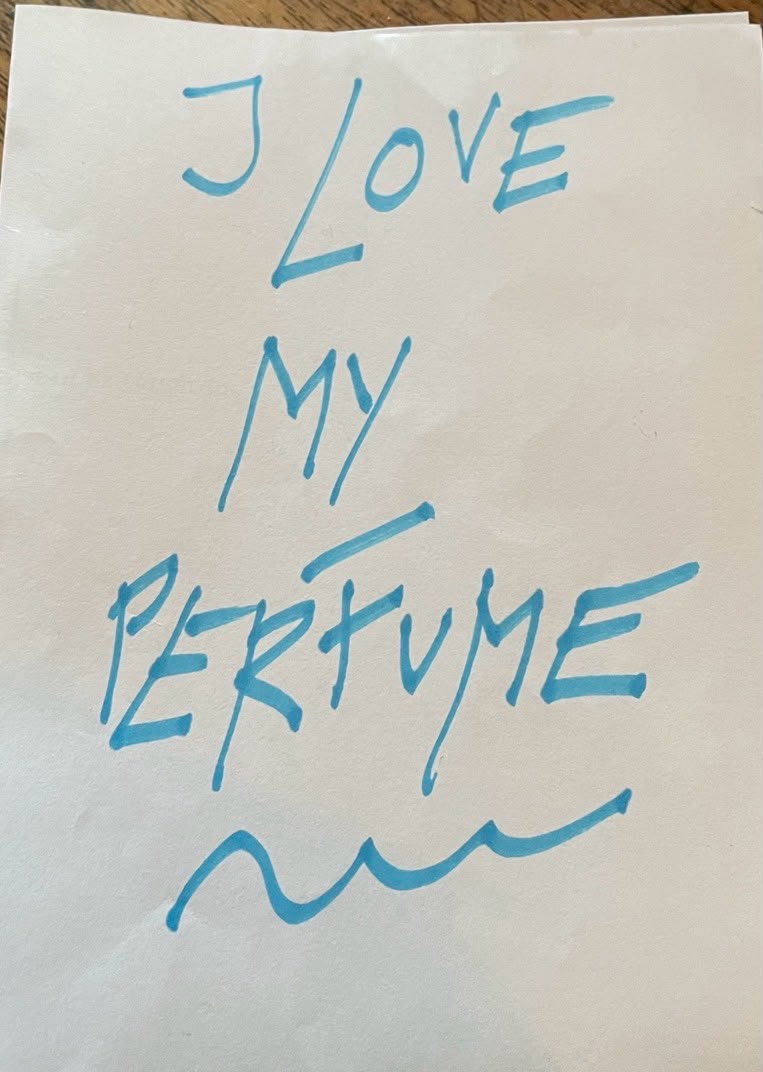 I LOVE
MY
PERFUME